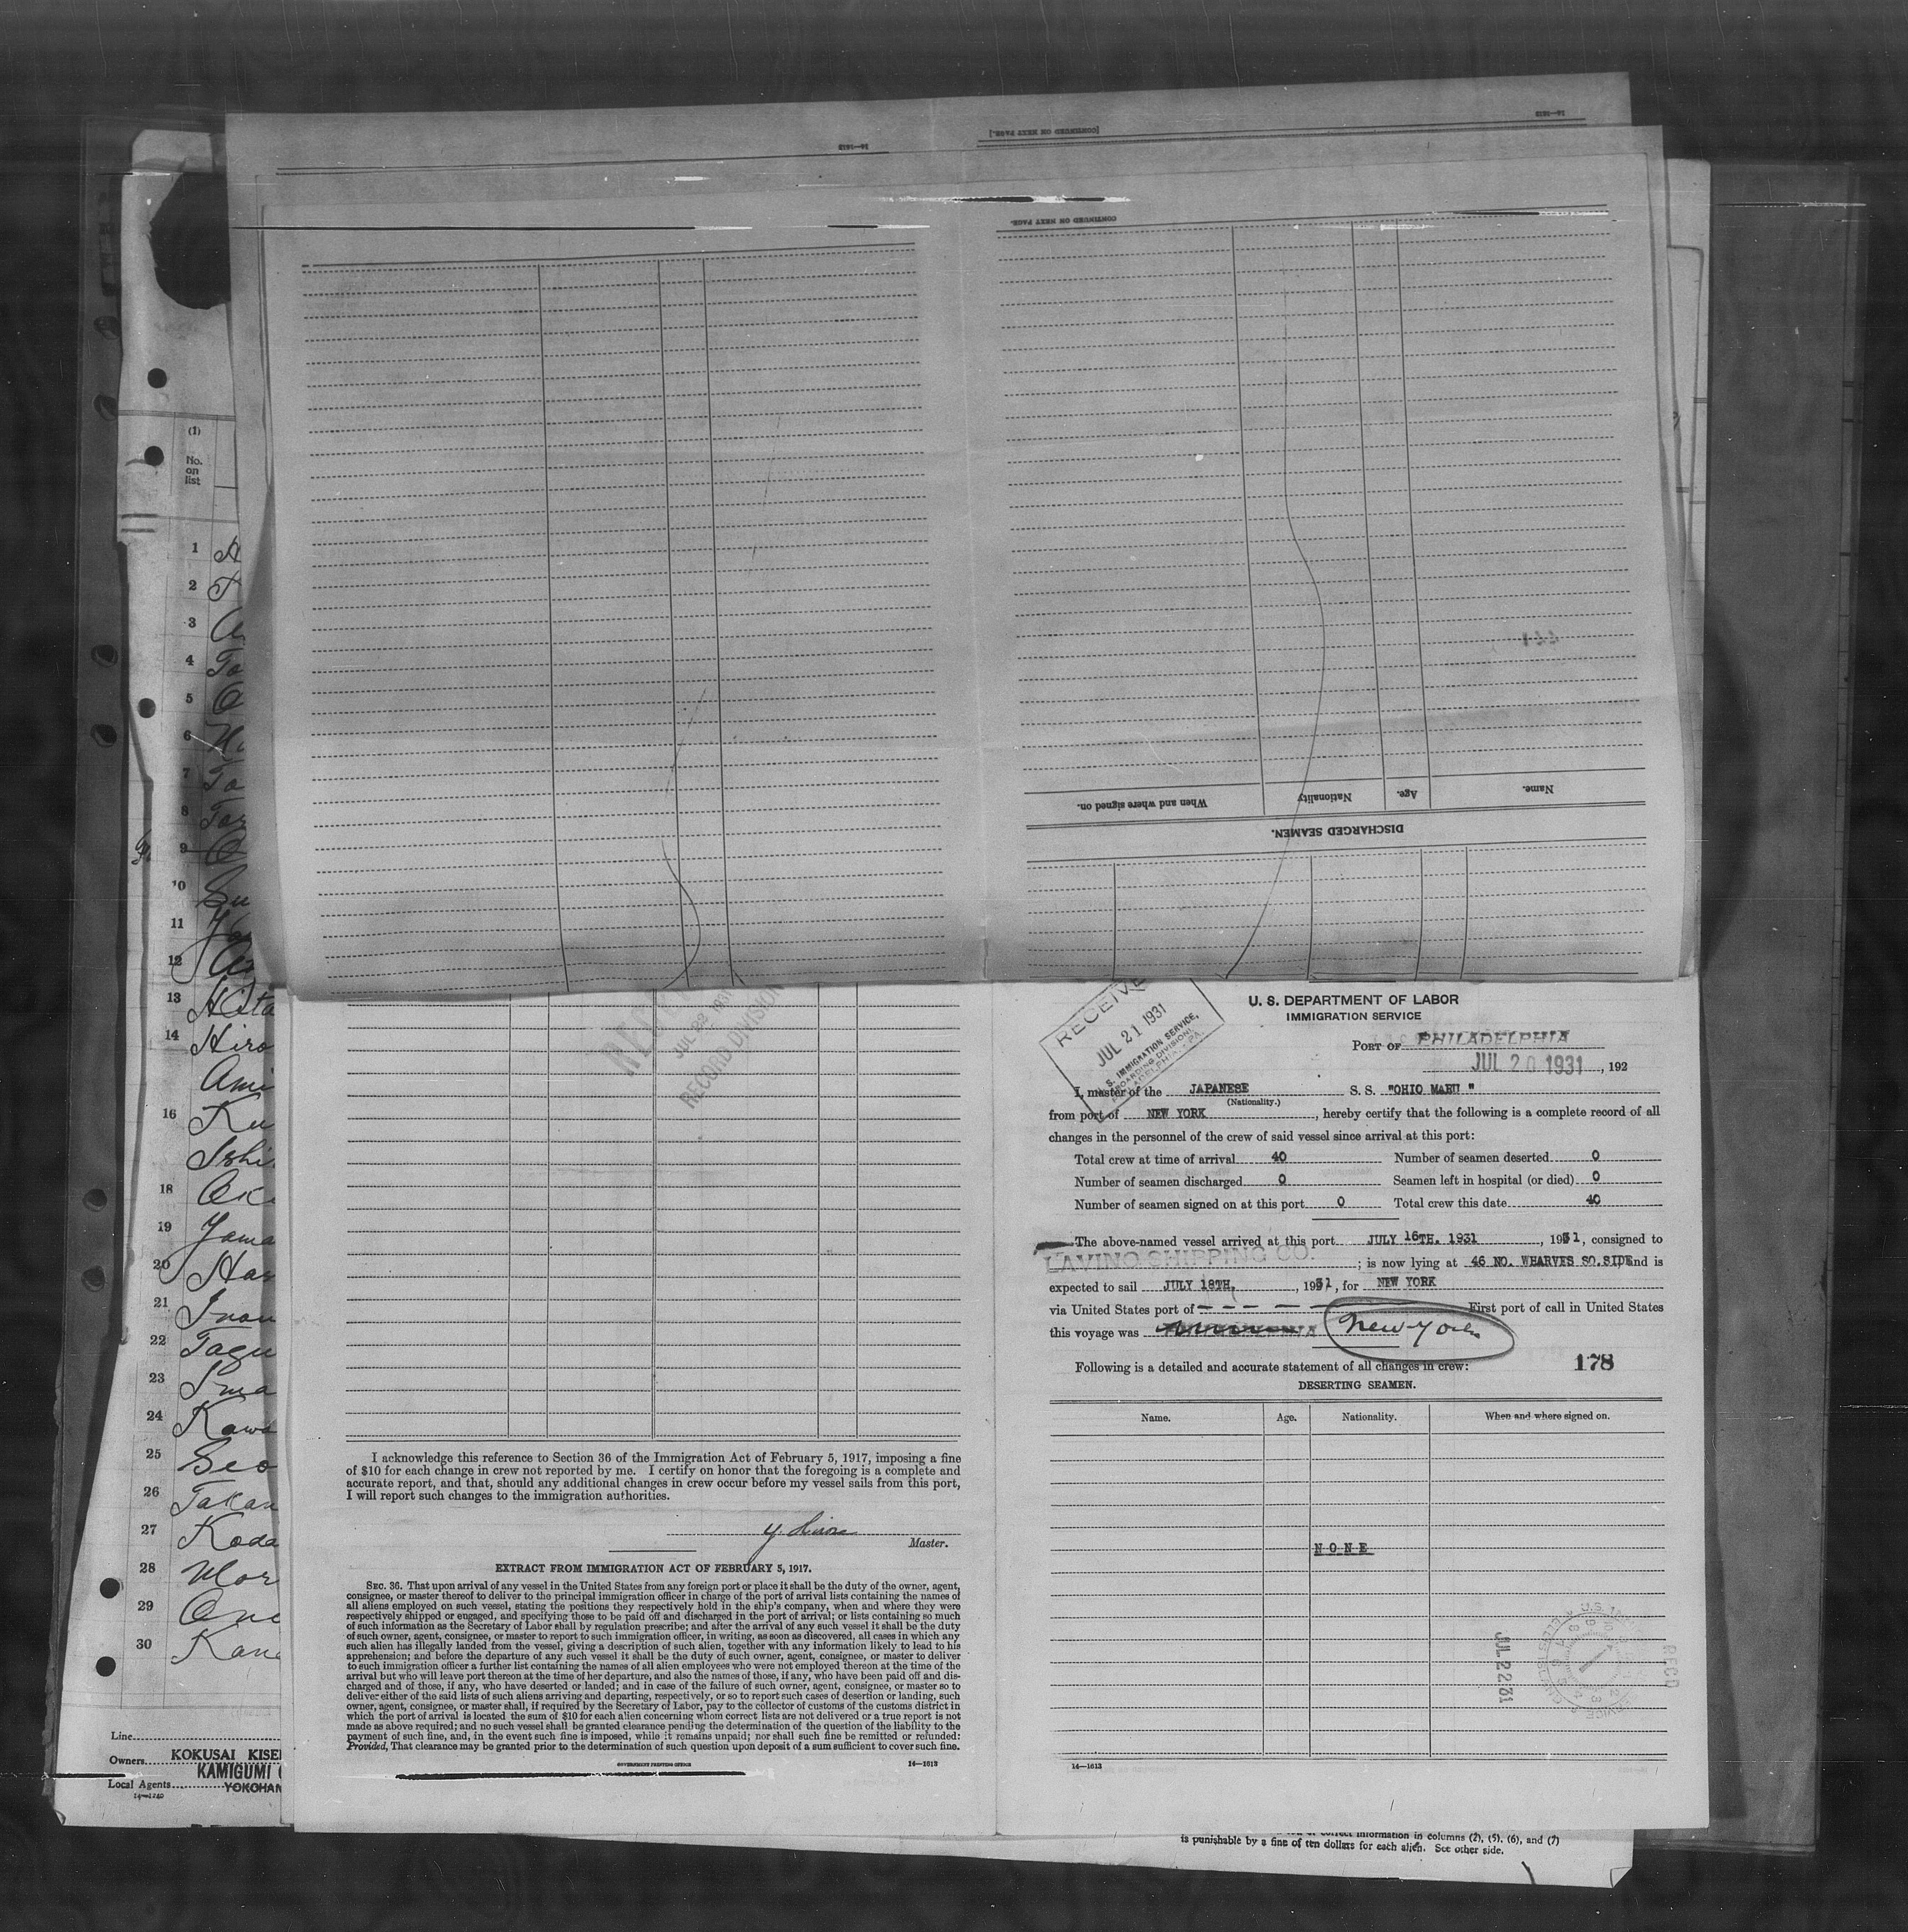 [CONTINUED ON NEXT PAGE.]
14—1613
14—1613
CONTINUED ON NEXT PAGE.
When and where signed on.
Nationality
Age.
Name.
DISCHARGED SEAMEN.
(1)
No.
on
list
1
2
3
4
5
6
7
8
9
10 Su
11
12
13 Kita
14 Hiro
Ami
16 Ku
Ishi
18 Oka
19 Yama
20 Has
21 Inou
22 Tagu
23 Ima
24 Kawa
25 Seo
26 Takan
27 Koda
28 Mor
29 One
30 Kane
Line
Owners KOKUSAI KISE
KAMIGUMI
Local Agents YOKOHAM
14—1240
JUL 22 1931
RECORD DIVISION
I acknowledge this reference to Section 36 of the Immigration Act of February 5, 1917, imposing a fine
of $10 for each change in crew not reported by me. I certify on honor that the foregoing is a complete and
accurate report, and that, should any additional changes in crew occur before my vessel sails from this port,
I will report such changes to the immigration authorities.
Master.
EXTRACT FROM IMMIGRATION ACT OF FEBRUARY 5, 1917.
SEC. 36. That upon arrival of any vessel in the United States from any foreign port or place it shall be the duty of the owner, agent,
consignee, or master thereof to deliver to the principal immigration officer in charge of the port of arrival lists containing the names of
all aliens employed on such vessel, stating the positions they respectively hold in the ship's company, when and where they were
respectively shipped or engaged, and specifying those to be paid off and discharged in the port of arrival; or lists containing so much
of such information as the Secretary of Labor shall by regulation prescribe; and after the arrival of any such vessel it shall be the duty
of such owner, agent, consignee, or master to report to such immigration officer, in writing, as soon as discovered, all cases in which any
such alien has illegally landed from the vessel, giving a description of such alien, together with any information likely to lead to his
apprehension; and before the departure of any such vessel it shall be the duty of such owner, agent, consignee, or master to deliver
to such immigration officer a further list containing the names of all alien employees who were not employed thereon at the time of the
arrival but who will leave port thereon at the time of her departure, and also the names of those, if any, who have been paid off and dis-
charged and of those, if any, who have deserted or landed; and in case of the failure of such owner, agent, consignee, or master so to
deliver either of the said lists of such aliens arriving and departing, respectively, or so to report such cases of desertion or landing, such
owner, agent, consignee, or master shall, if required by the Secretary of Labor, pay to the collector of customs of the customs district in
which the port of arrival is located the sum of $10 for each alien concerning whom correct lists are not delivered or a true report is not
made as above required; and no such vessel shall be granted clearance pending the determination of the question of the liability to the
payment of such fine, and, in the event such fine is imposed, while it remains unpaid; nor shall such fine be remitted or refunded:
Provided, That clearance may be granted prior to the determination of such question upon deposit of a sum sufficient to cover such fine.
GOVERNMENT PRINTING OFFICE
14—1613
RECEIVE
JUL 21 1931
S. IMMIGRATION SERVICE,
BOARDING DIVISION,
ADELPHIA, PA.
U. S. DEPARTMENT OF LABOR
IMMIGRATION SERVICE
PORT OF PHILADELPHIA
JUL 20 1931, 192
I, master of the JAPANESE S. S. "OHIO MARU"
(Nationality.)
from port of NEW YORK, hereby certify that the following is a complete record of all
changes in the personnel of the crew of said vessel since arrival at this port:
Total crew at time of arrival 40 Number of seamen deserted 0
Number of seamen discharged 0 Seamen left in hospital (or died) 0
Number of seamen signed on at this port 0 Total crew this date 40
The above-named vessel arrived at this port JULY 16TH. 1931, 1931, consigned to
LAVINO SHIPPING CO.; is now lying at 46 NO. WHARVES SO. SIDE and is
expected to sail JULY 18TH., 1931, for NEW YORK
via United States port of — — — — — First port of call in United States
this voyage was New York
Following is a detailed and accurate statement of all changes in crew: 178
DESERTING SEAMEN.
Name. Age. Nationality. When and where signed on.
NONE
JUL 22 31
RECD
14—1613
correct information in columns (2), (5), (6), and (7)
is punishable by a fine of ten dollars for each alien. See other side.